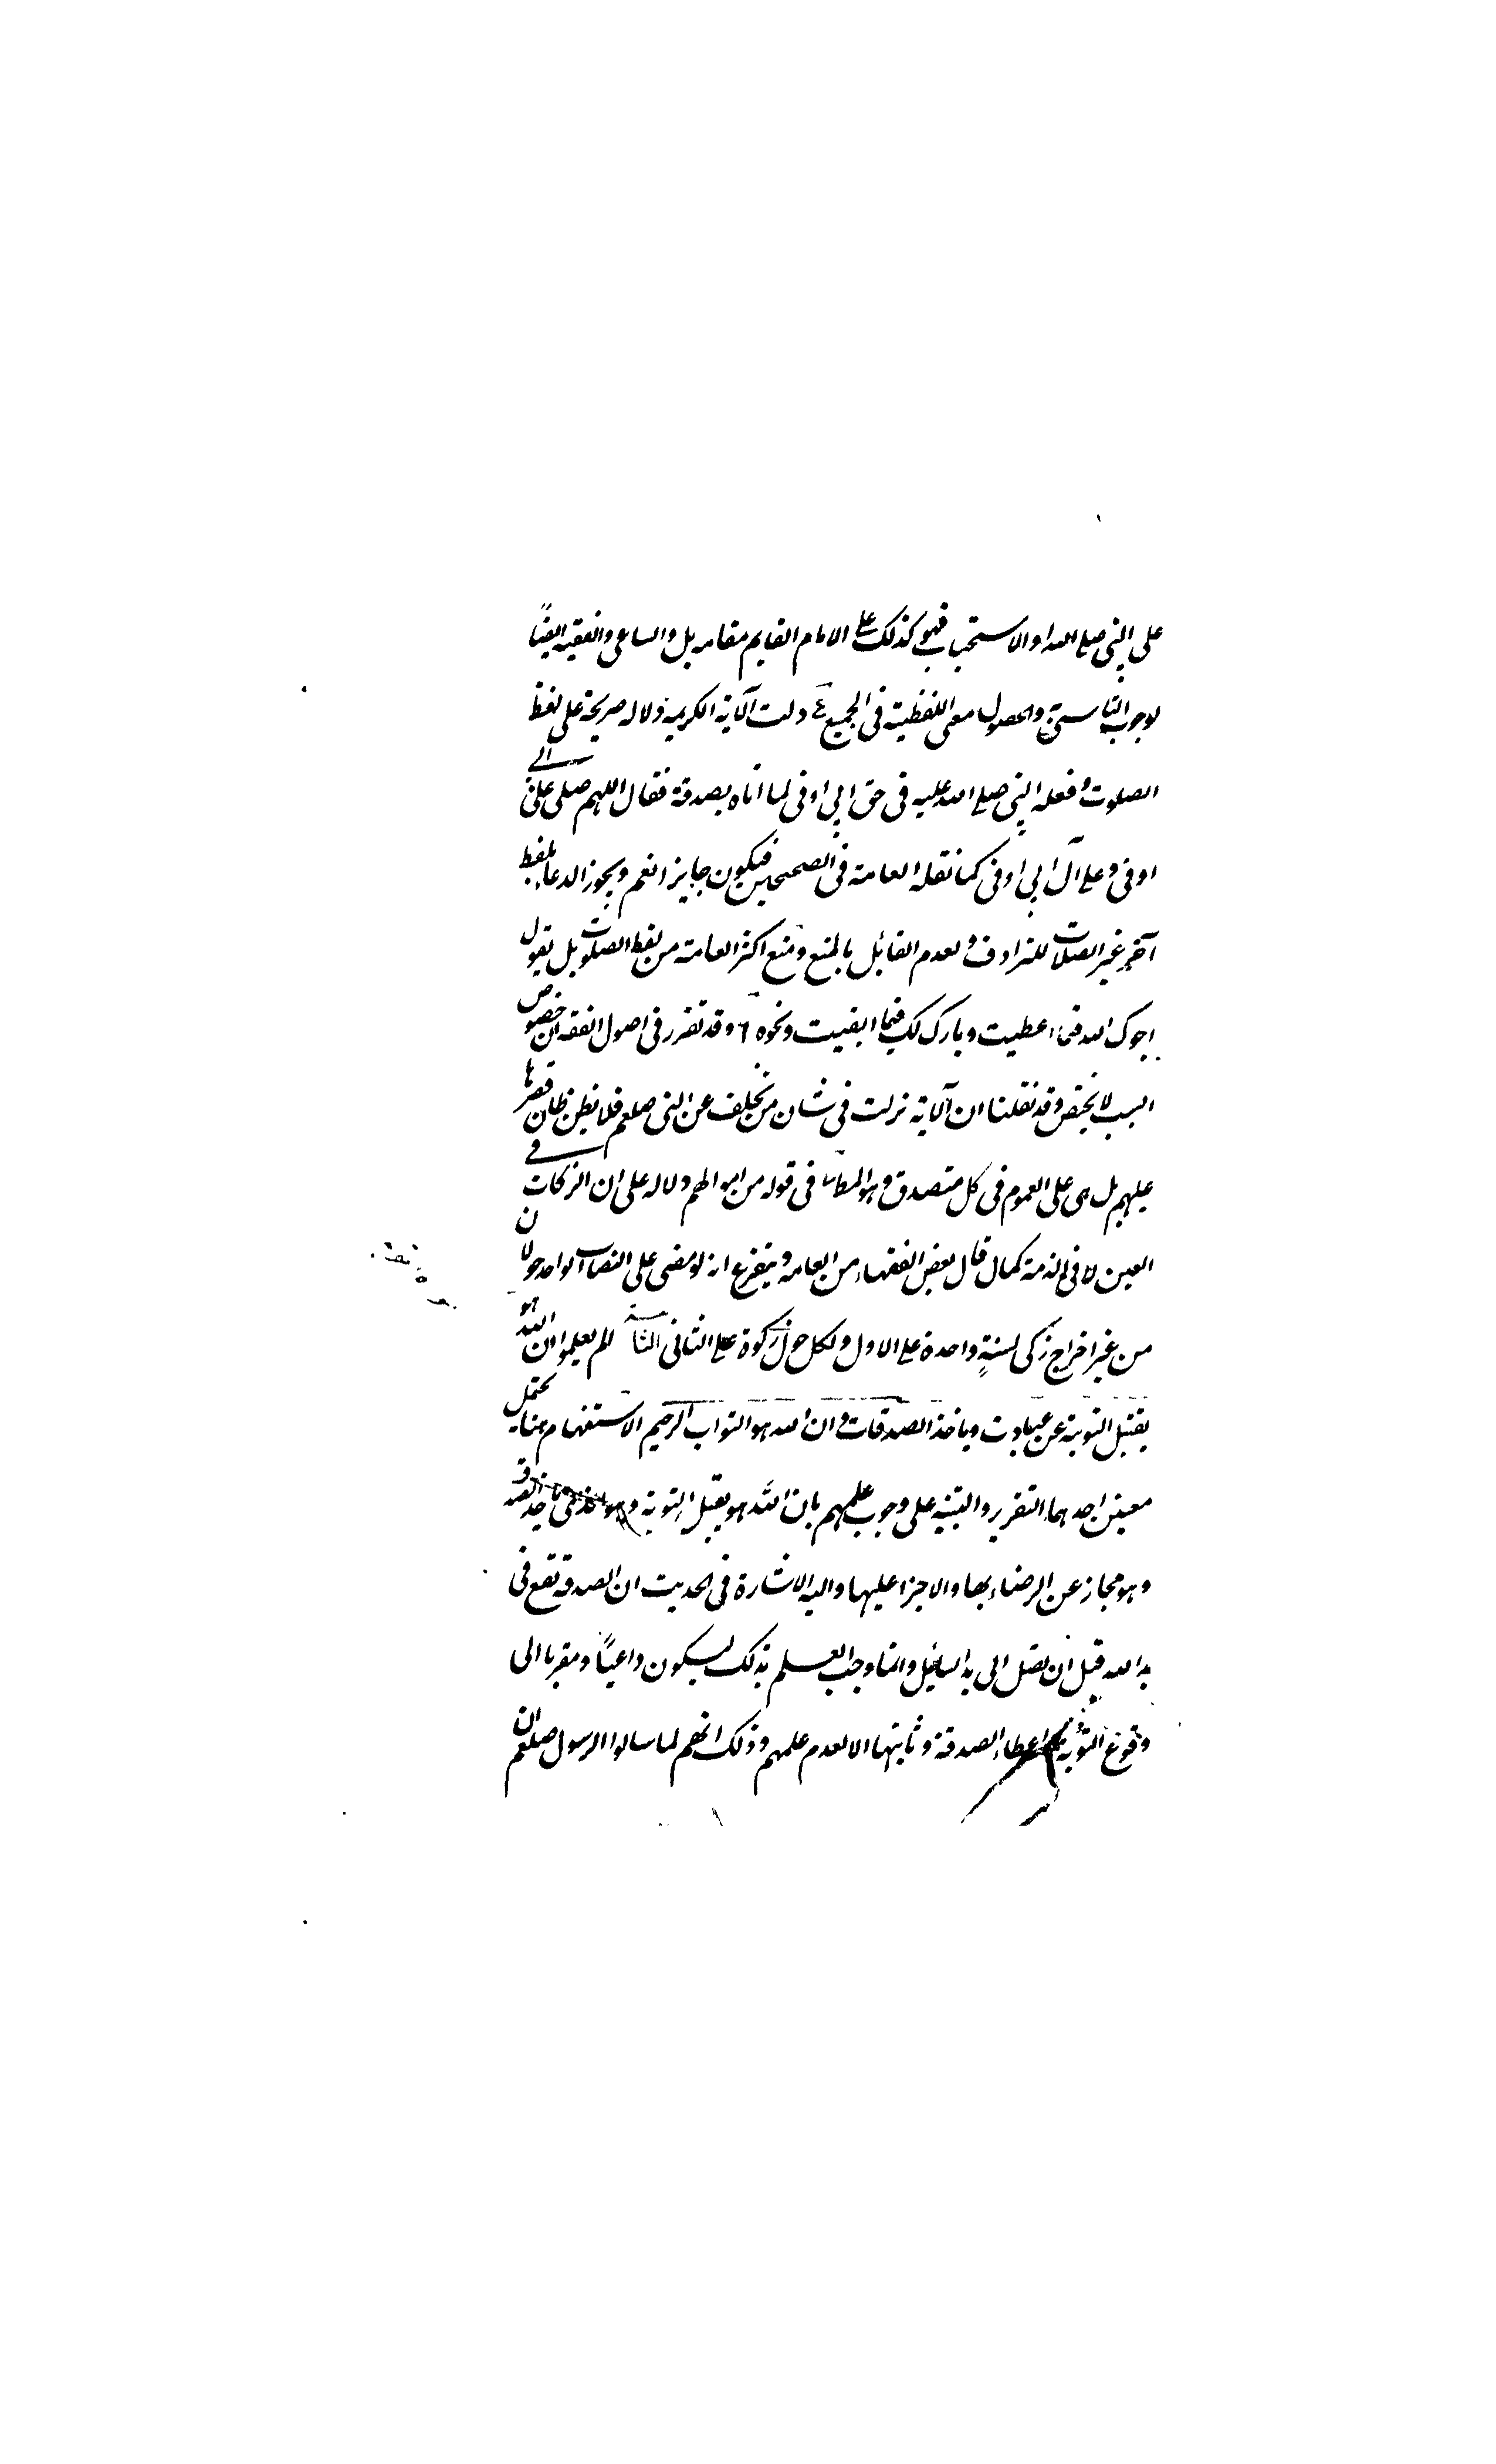 على النبي صلى الله او الاستحباب فهو كذلك على الامام القايم مقامه بل والساعى والفقيه ايضًا
لوجوب التاسي والحصول معنى اللفظية فى الجميع ع دلت الآية الكريمة دلاله صريحة على لفظ
الصلوت و فعله النبي صلى الله عليه فى حق ابي اوفى لما اتاه بصدقة فقال اللهم صلى على ابي
اوفى و على آل ابي اوفى كما نقله العامة فى الصحيحين فيكون جايزا نعم ويجوز الدعاء بلفظ
آخر غير الصلات للترادف و لعدم القائل بالمنع و منع اكثر العامة من لفظ الصلوت بل يقول
اجرك الله فيما اعطيت وبارك لك فيما ابقيت ونحوه ٦ وقد تقرر فى اصول الفقه ان خصوص
السبب لا يخصص وقد نقلنا ان الآية نزلت فى شان من تخلف عن النبى صلعم فلا يظن ظان قصرها
عليهم بل هى على العموم فى كل متصدق وهو المطلب فى قوله من اموالهم دلاله على ان الزكات فى
العين لا فى الذمة كما قال بعض الفقهاء من العامه ويتفرع انه لو مضى على النصاب الواحد حولان
من غير اخراج زكى لسنةٍ واحدة على الاول ولكل حول زكوة على الثانى الثالثة الم يعلموا ان الله هو
يقبل التوبة عن عباده وياخذ الصدقات و ان الله هو التواب الرحيم الاستفهام هنا يحتمل
معنيين احدهما التقرير والتنبيه على وجوب علمهم بان الله هو يقبل التوبة وهو ياخذ الصدقة
وهو مجاز عن الرضاء بها والاجزا عليها واليه الاشارة فى الحديث ان الصدقة تقع فى
يد الله قبل ان تصل الى يد السائل وانما وجب العلم بذلك ليكون داعيًا ومقربا الى
وقوع التوبة اعطاء الصدقة وثانيتها الا لعدم علمهم وذلك انهم لما سالوا الرسول صلعم ان